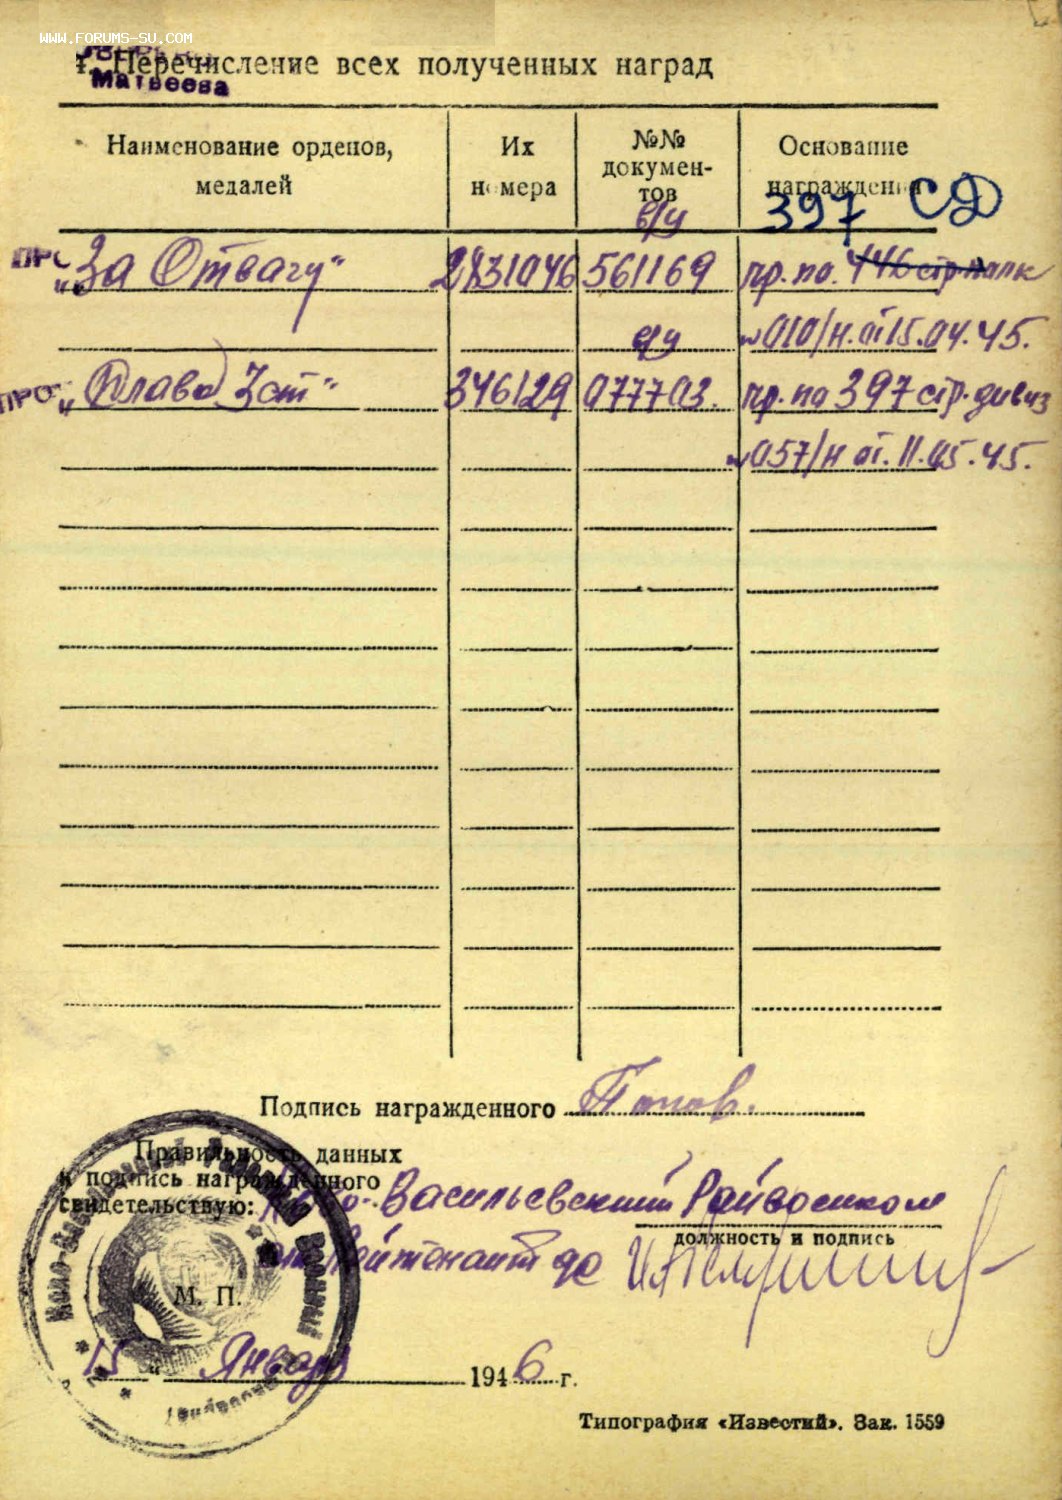 WWW.FORUMS-SU.COM
Матвеева
Перечисление всех полученных наград
Наименование орденов, медалей
Их номера
№№ документов
Основание награждения
в/у
397 СД
"За Отвагу" 2831046 561169 пр. по 446 стр. полк
в/у №010/н. от 15.04.45.
"Слава 3 ст" 346129 077703. пр. по 397 стр. дивиз
№057/н от. 11.05.45.
Подпись награжденного Попов.
Правильность данных
и подпись награжденного
свидетельствую: Ново-Васильевский Райвоенком
должность и подпись
Лейтенант
М. П.
"15" Января 1946 г.
Типография «Известий». Зак. 1559